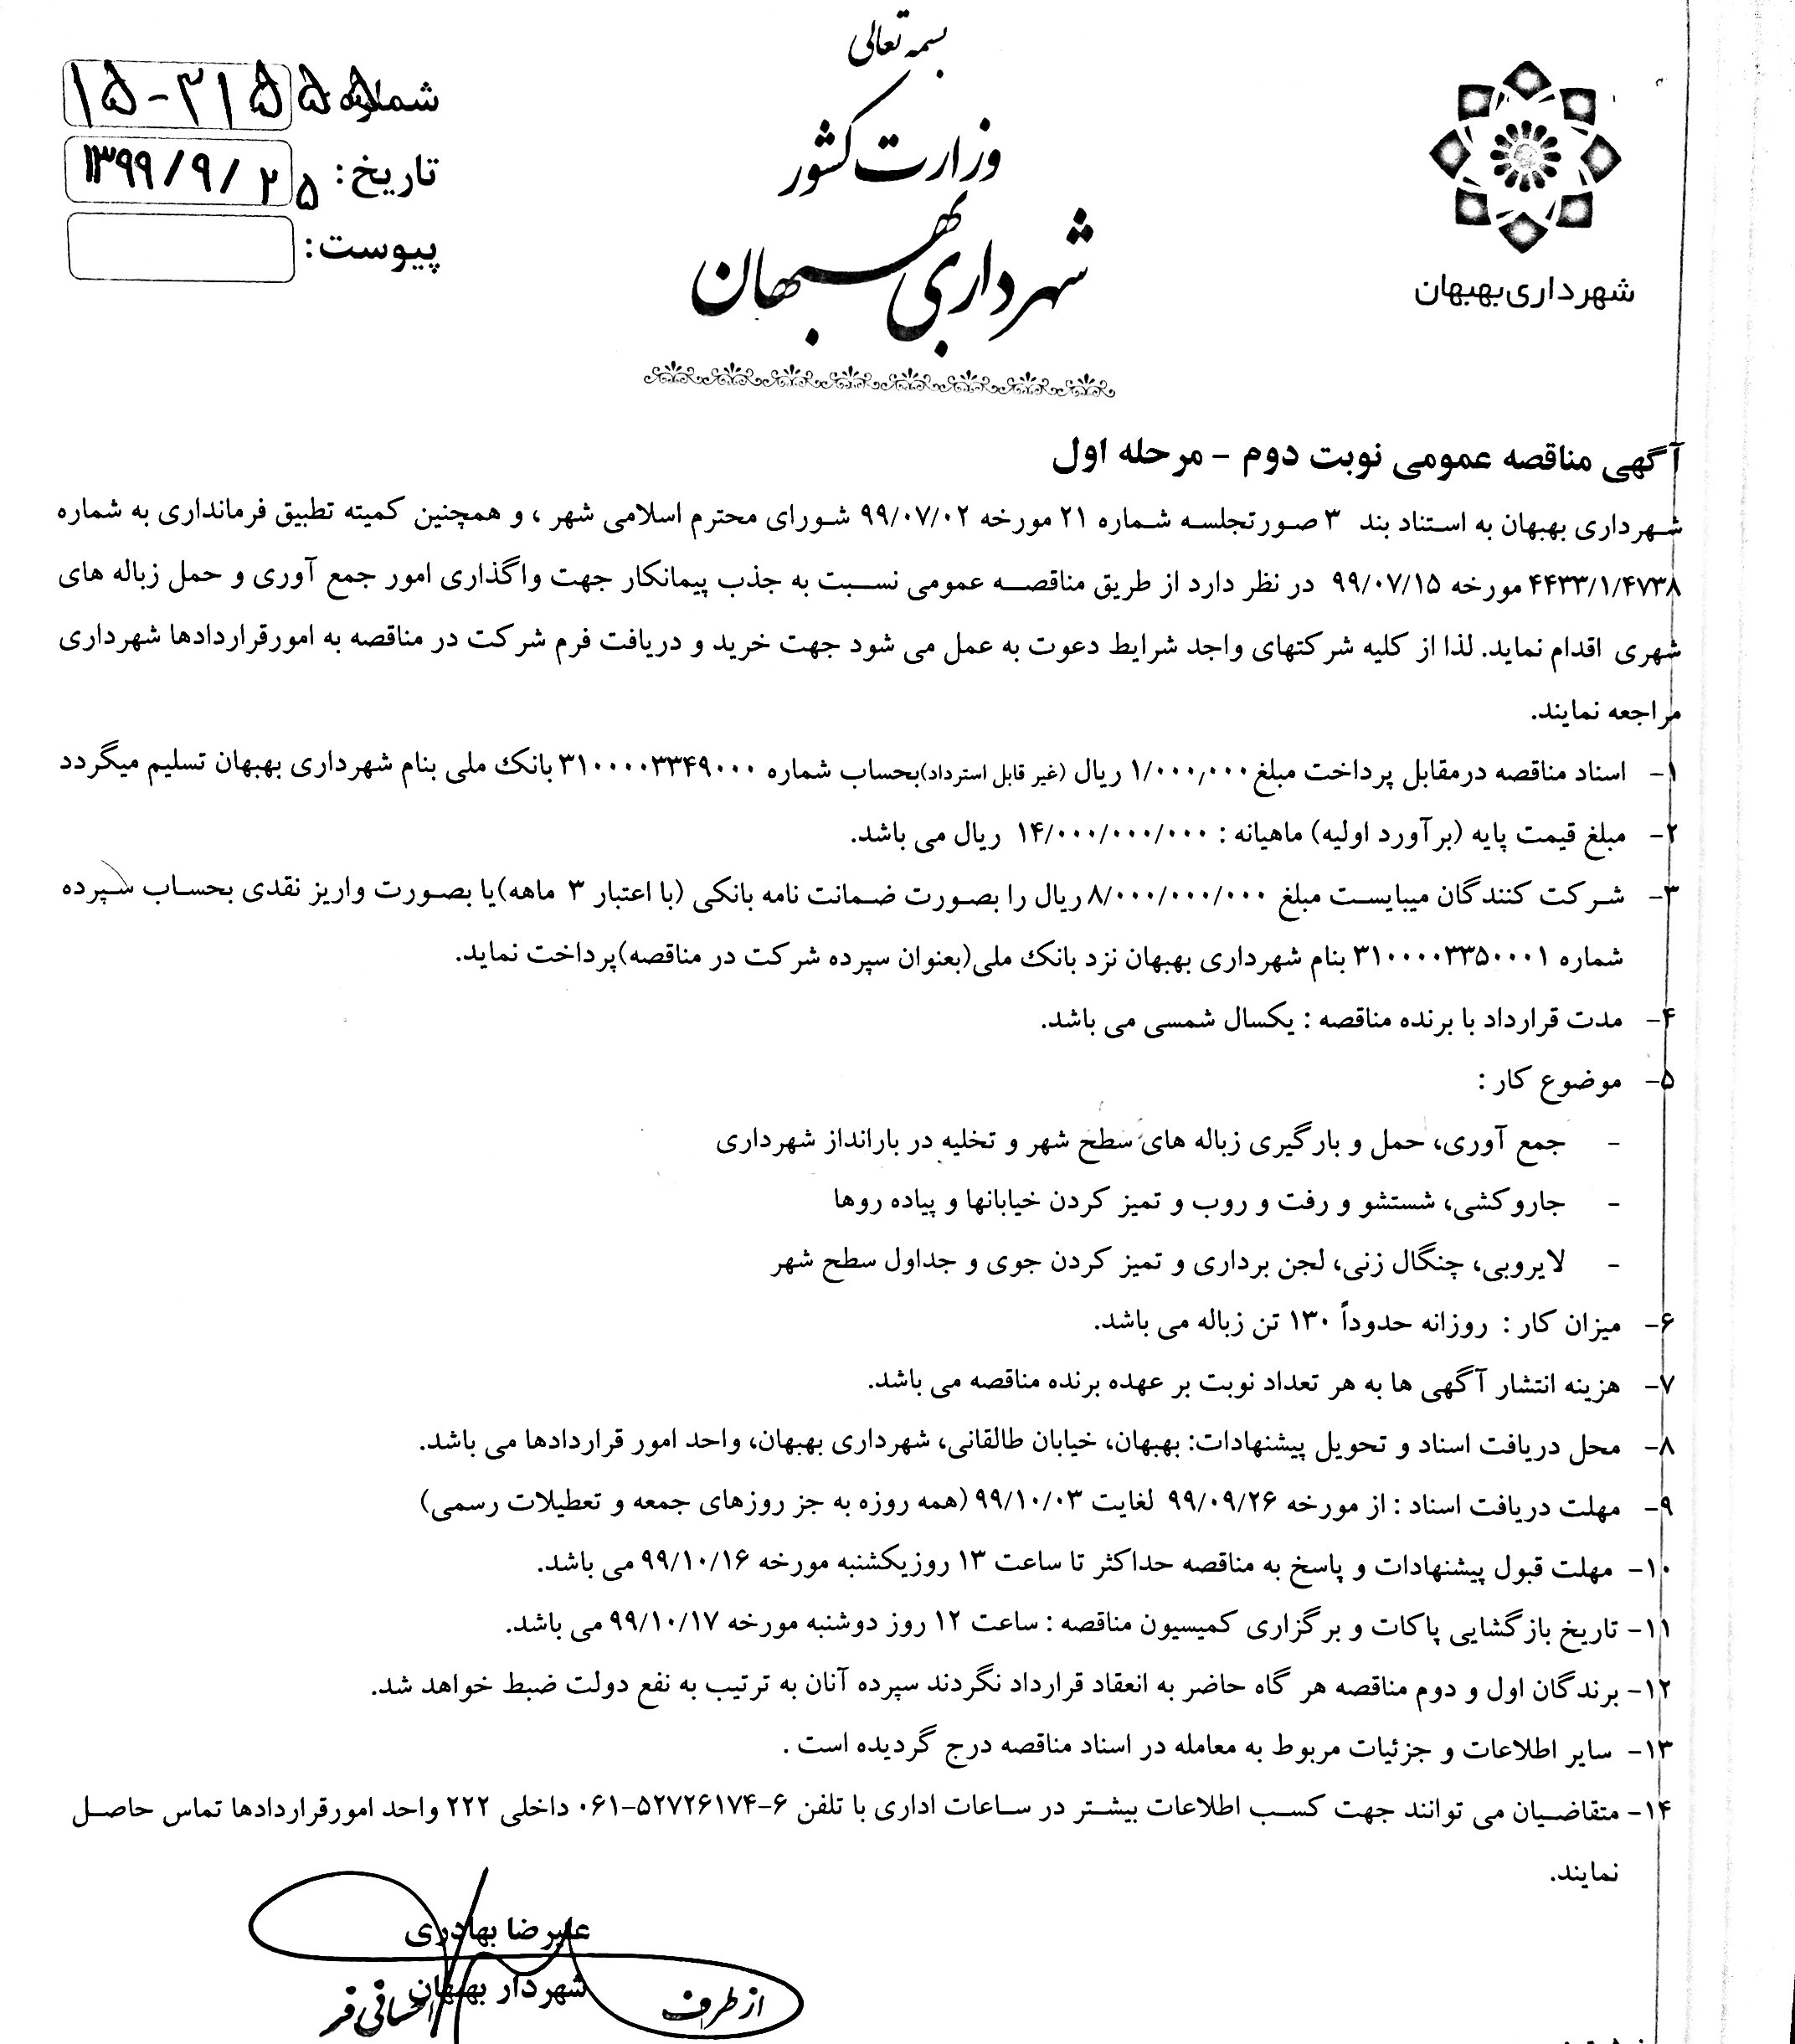 بسمه تعالی
وزارت کشور
شهرداری بهبهان
شهرداری بهبهان
شماره
تاریخ: ۱۳۹۹/۹/۲۵
پیوست:
آگهی مناقصه عمومی نوبت دوم - مرحله اول
شهرداری بهبهان به استناد بند ۳ صورتجلسه شماره ۲۱ مورخه ۹۹/۰۷/۰۲ شورای محترم اسلامی شهر ، و همچنین کمیته تطبیق فرمانداری به شماره
۴۴۳۳/۱/۴۷۳۸ مورخه ۹۹/۰۷/۱۵ در نظر دارد از طریق مناقصه عمومی نسبت به جذب پیمانکار جهت واگذاری امور جمع آوری و حمل زباله های
شهری اقدام نماید. لذا از کلیه شرکتهای واجد شرایط دعوت به عمل می شود جهت خرید و دریافت فرم شرکت در مناقصه به امورقراردادها شهرداری
مراجعه نمایند.
۱- اسناد مناقصه درمقابل پرداخت مبلغ ۱/۰۰۰,۰۰۰ ریال (غیر قابل استرداد)بحساب شماره ۳۱۰۰۰۰۳۳۴۹۰۰۰ بانک ملی بنام شهرداری بهبهان تسلیم میگردد
۲- مبلغ قیمت پایه (برآورد اولیه) ماهیانه : ۱۴/۰۰۰/۰۰۰/۰۰۰ ریال می باشد.
۳- شرکت کنندگان میبایست مبلغ ۸/۰۰۰/۰۰۰/۰۰۰ ریال را بصورت ضمانت نامه بانکی (با اعتبار ۳ ماهه)یا بصورت واریز نقدی بحساب سپرده
شماره ۳۱۰۰۰۰۳۳۵۰۰۰۱ بنام شهرداری بهبهان نزد بانک ملی(بعنوان سپرده شرکت در مناقصه)پرداخت نماید.
۴- مدت قرارداد با برنده مناقصه : یکسال شمسی می باشد.
۵- موضوع کار :
- جمع آوری، حمل و بارگیری زباله های سطح شهر و تخلیه در بارانداز شهرداری
- جاروکشی، شستشو و رفت و روب و تمیز کردن خیابانها و پیاده روها
- لایروبی، چنگال زنی، لجن برداری و تمیز کردن جوی و جداول سطح شهر
۶- میزان کار : روزانه حدوداً ۱۳۰ تن زباله می باشد.
۷- هزینه انتشار آگهی ها به هر تعداد نوبت بر عهده برنده مناقصه می باشد.
۸- محل دریافت اسناد و تحویل پیشنهادات: بهبهان، خیابان طالقانی، شهرداری بهبهان، واحد امور قراردادها می باشد.
۹- مهلت دریافت اسناد : از مورخه ۹۹/۰۹/۲۶ لغایت ۹۹/۱۰/۰۳ (همه روزه به جز روزهای جمعه و تعطیلات رسمی)
۱۰- مهلت قبول پیشنهادات و پاسخ به مناقصه حداکثر تا ساعت ۱۳ روزیکشنبه مورخه ۹۹/۱۰/۱۶ می باشد.
۱۱- تاریخ بازگشایی پاکات و برگزاری کمیسیون مناقصه : ساعت ۱۲ روز دوشنبه مورخه ۹۹/۱۰/۱۷ می باشد.
۱۲- برندگان اول و دوم مناقصه هر گاه حاضر به انعقاد قرارداد نگردند سپرده آنان به ترتیب به نفع دولت ضبط خواهد شد.
۱۳- سایر اطلاعات و جزئیات مربوط به معامله در اسناد مناقصه درج گردیده است .
۱۴- متقاضیان می توانند جهت کسب اطلاعات بیشتر در ساعات اداری با تلفن ۶-۵۲۷۲۶۱۷۴-۰۶۱ داخلی ۲۲۲ واحد امورقراردادها تماس حاصل
نمایند.
علیرضا بهادری
شهردار بهبهان
از طرف